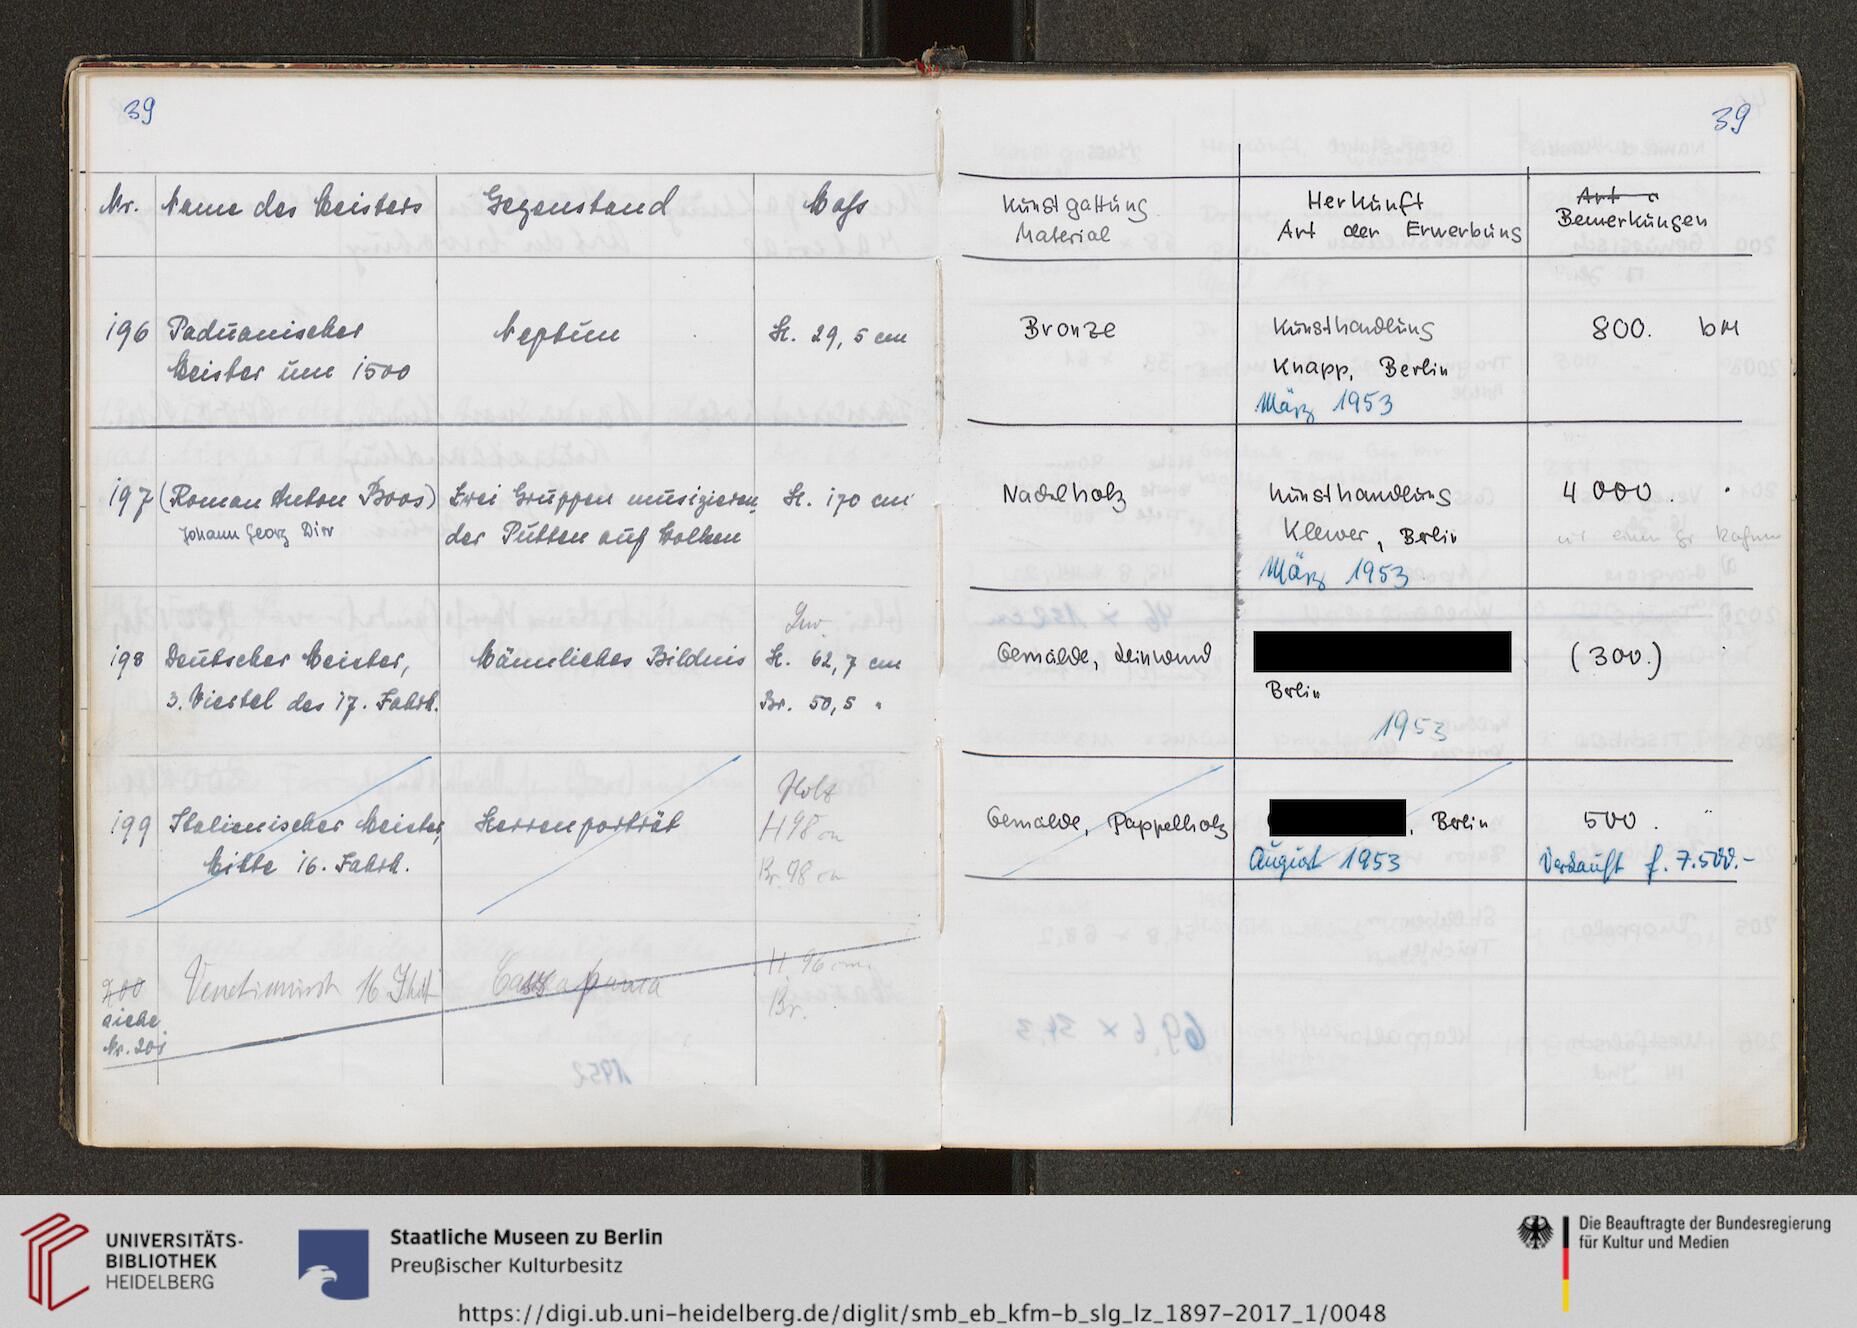 39
39
Nr. Name des Meisters Gegenstand Maſs
Kunstgattung Material
Herkunft
Art der Erwerbung
Art
Bemerkungen
196 Paduanischer Meister um 1500
Neptun
H. 29,5 cm
Bronze
Kunsthandlung
Knapp, Berlin
März 1953
800. DM
197 (Roman Anton Boos)
Johann Georg Dirr
Zwei Gruppen musizieren
der Putten auf Wolken
H. 170 cm
Nadelholz
Kunsthandlung
Klewer, Berlin
März 1953
4000.
198 Deutscher Meister,
3. Viertel des 17. Jahrh.
Männliches Bildnis
Lnw.
H. 62,7 cm
Br. 50,5 "
Gemälde, Leinwand
Berlin
1953
(300.)
199 Italienischer Meister,
Mitte 16. Jahrh.
Herrenporträt
Holz
H 98 cm
Br. 98 cm
Gemälde, Pappelholz
, Berlin
August 1953
500. "
Verkauft f. 7.500.-
200
siehe
Nr. 201
Venetianisch 16 Jhdt
Cassapanca
H. 96 cm
Br.
UNIVERSITÄTS-
BIBLIOTHEK
HEIDELBERG
Staatliche Museen zu Berlin
Preußischer Kulturbesitz
Die Beauftragte der Bundesregierung
für Kultur und Medien
https://digi.ub.uni-heidelberg.de/diglit/smb_eb_kfm-b_slg_lz_1897-2017_1/0048